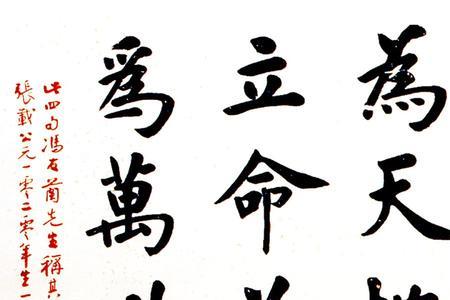 為天
立命
爲萬
此四句馮友蘭先生稱其
張載公元一零二零年生一